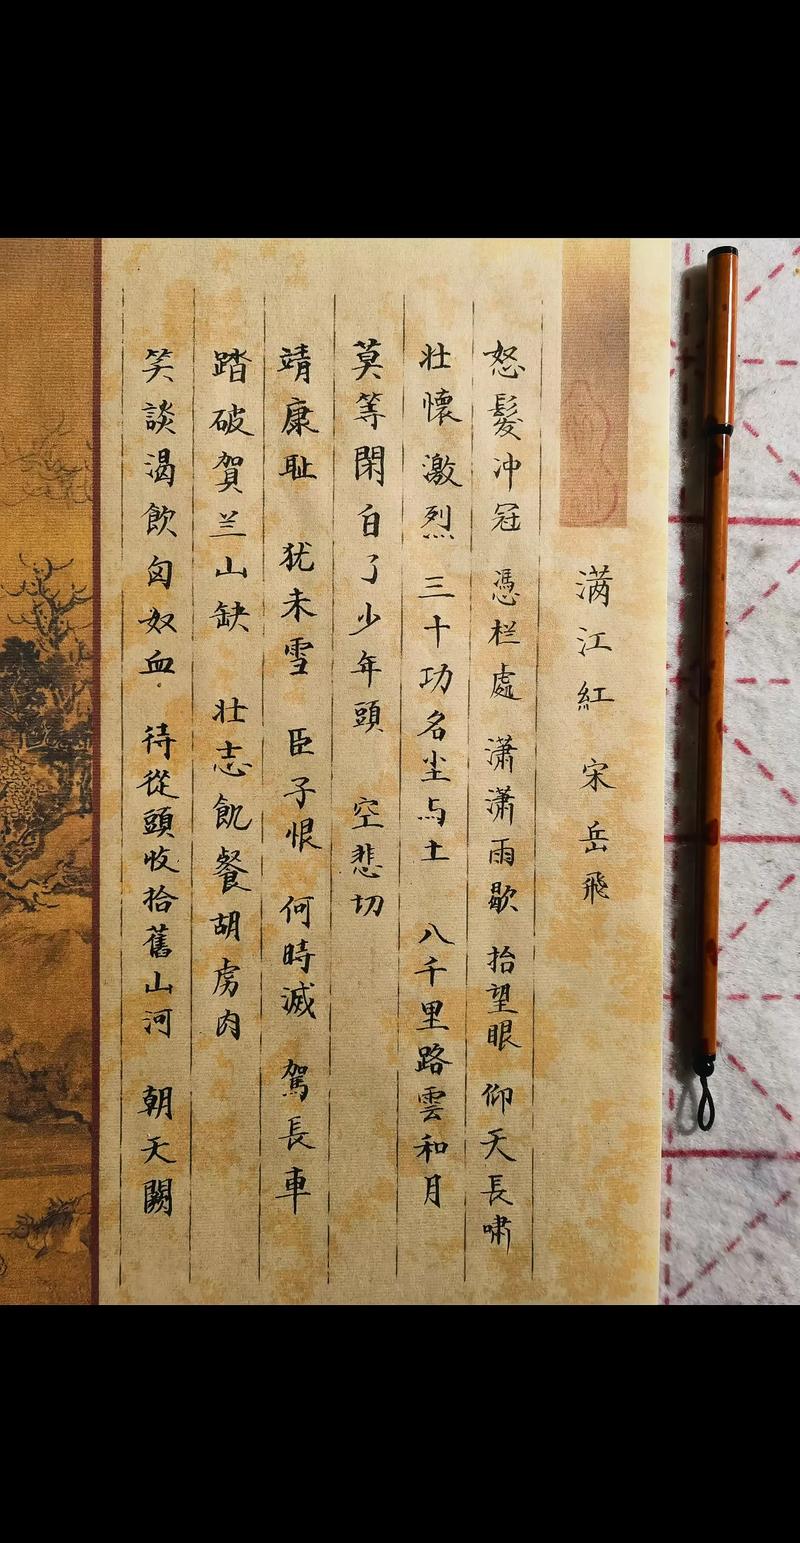 满江紅 宋 岳飛
怒髮冲冠 憑栏處 潇潇雨歇 抬望眼 仰天長啸
壮懷激烈 三十功名尘与土 八千里路雲和月
莫等閑白了少年頭 空悲切
靖康耻 犹未雪 臣子恨 何時滅 駕長車
踏破賀兰山缺 壮志飢餐胡虏肉
笑談渴飲匈奴血 待從頭收拾舊山河 朝天闕